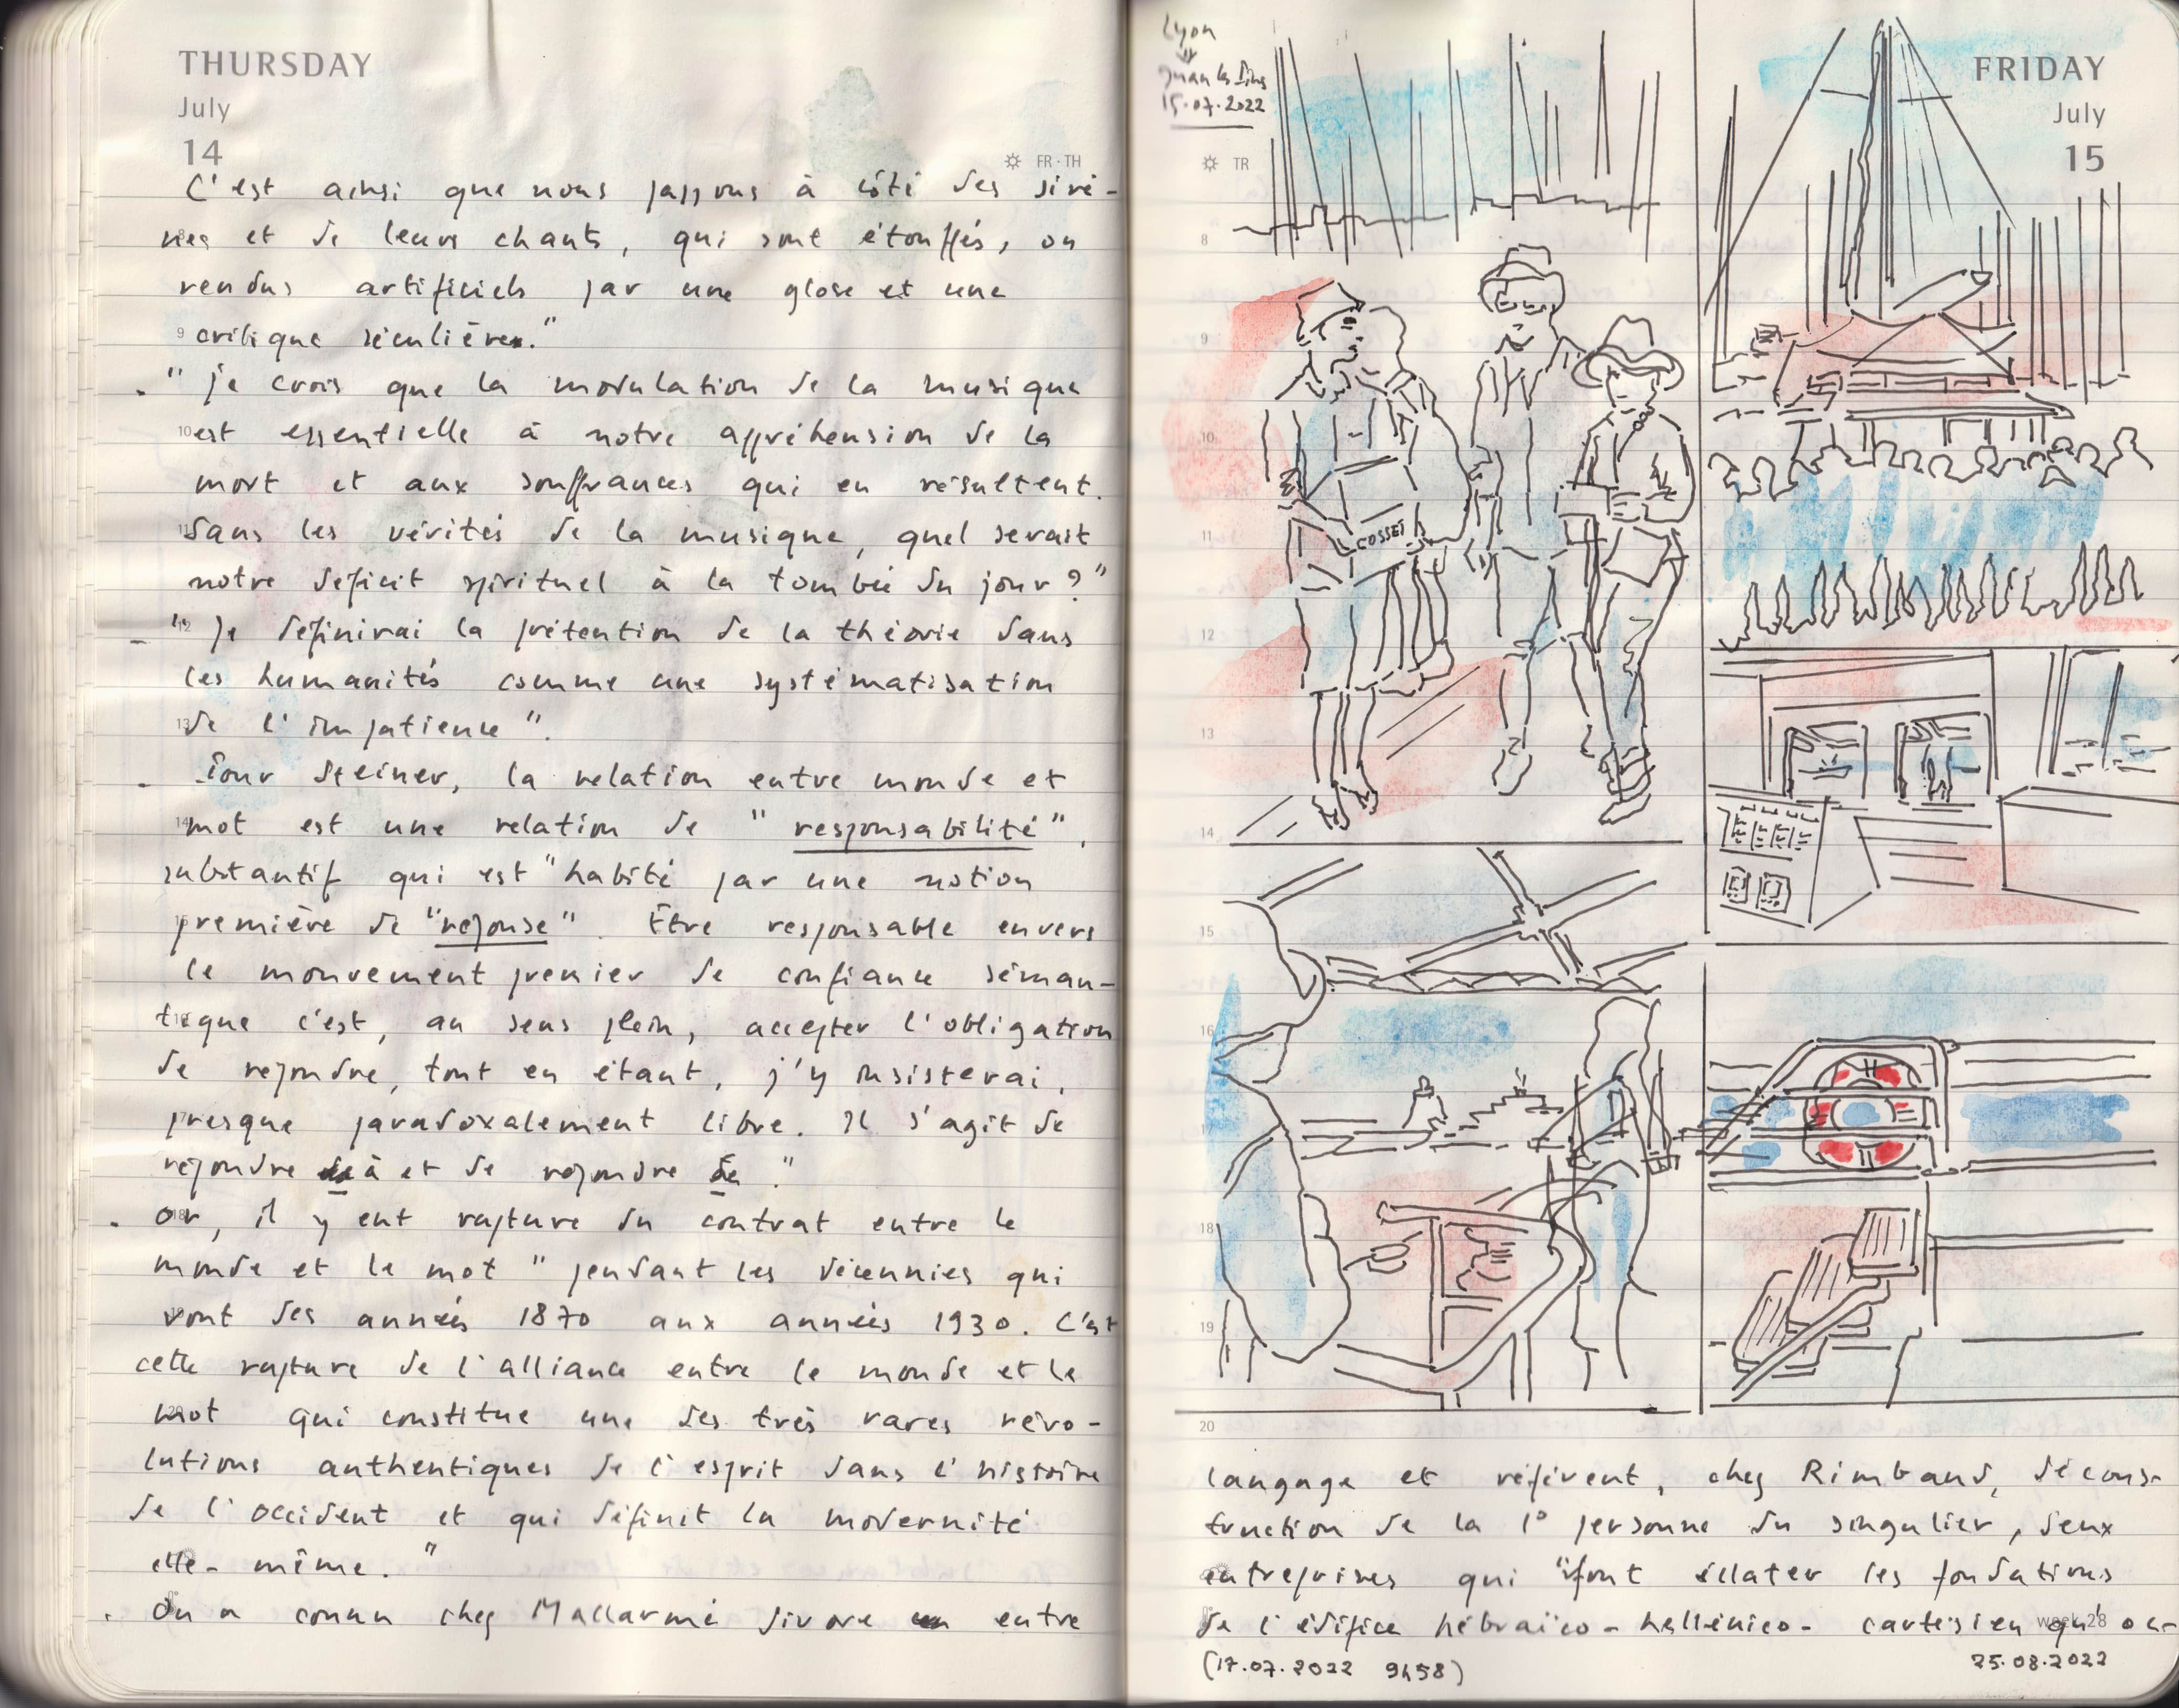 THURSDAY
July
14
FR · TH
C'est ainsi que nous passons à côté des sirè-
nes et de leurs chants, qui sont étouffés, ou
rendus artificiels par une glose et une
9 critique séculières."
- " je crois que la modulation de la musique
10 est essentielle à notre appréhension de la
mort et aux souffrances qui en résultent.
11 Sans les vérités de la musique, quel serait
notre déficit spirituel à la tombée du jour ?"
- 12 " Je définirai la prétention de la théorie dans
les humanités comme une systématisation
13 de l'impatience".
- Pour Steiner, la relation entre monde et
14 mot est une relation de "responsabilité",
substantif qui est "habité par une notion
15 première de "réponse". Être responsable envers
le mouvement premier de confiance séman-
tique c'est, au sens plein, accepter l'obligation
de répondre, tout en étant, j'y insisterai,
presque paradoxalement libre. Il s'agit de
répondre à et de répondre de."
- Or, il y eut rupture du contrat entre le
monde et le mot " pendant les décennies qui
vont des années 1870 aux années 1930. C'est
cette rupture de l'alliance entre le monde et le
mot qui constitue une des très rares révo-
lutions authentiques de l'esprit dans l'histoire
de l'occident et qui définit la modernité
elle-même."
- On a connu chez Mallarmé divorce entre
Lyon
Juan les Pins
15.07.2022
TR
FRIDAY
July
15
8
9
10
11
COSSET
12
13
14
15
16
18
19
20
langage et référent, chez Rimbaud, décons-
truction de la 1° personne du singulier, deux
entreprises qui "font éclater les fondations
de l'édifice hébraïco-hellénico-cartésien qu'oc-
week 28
(17.07.2022 9h58)
25.08.2022